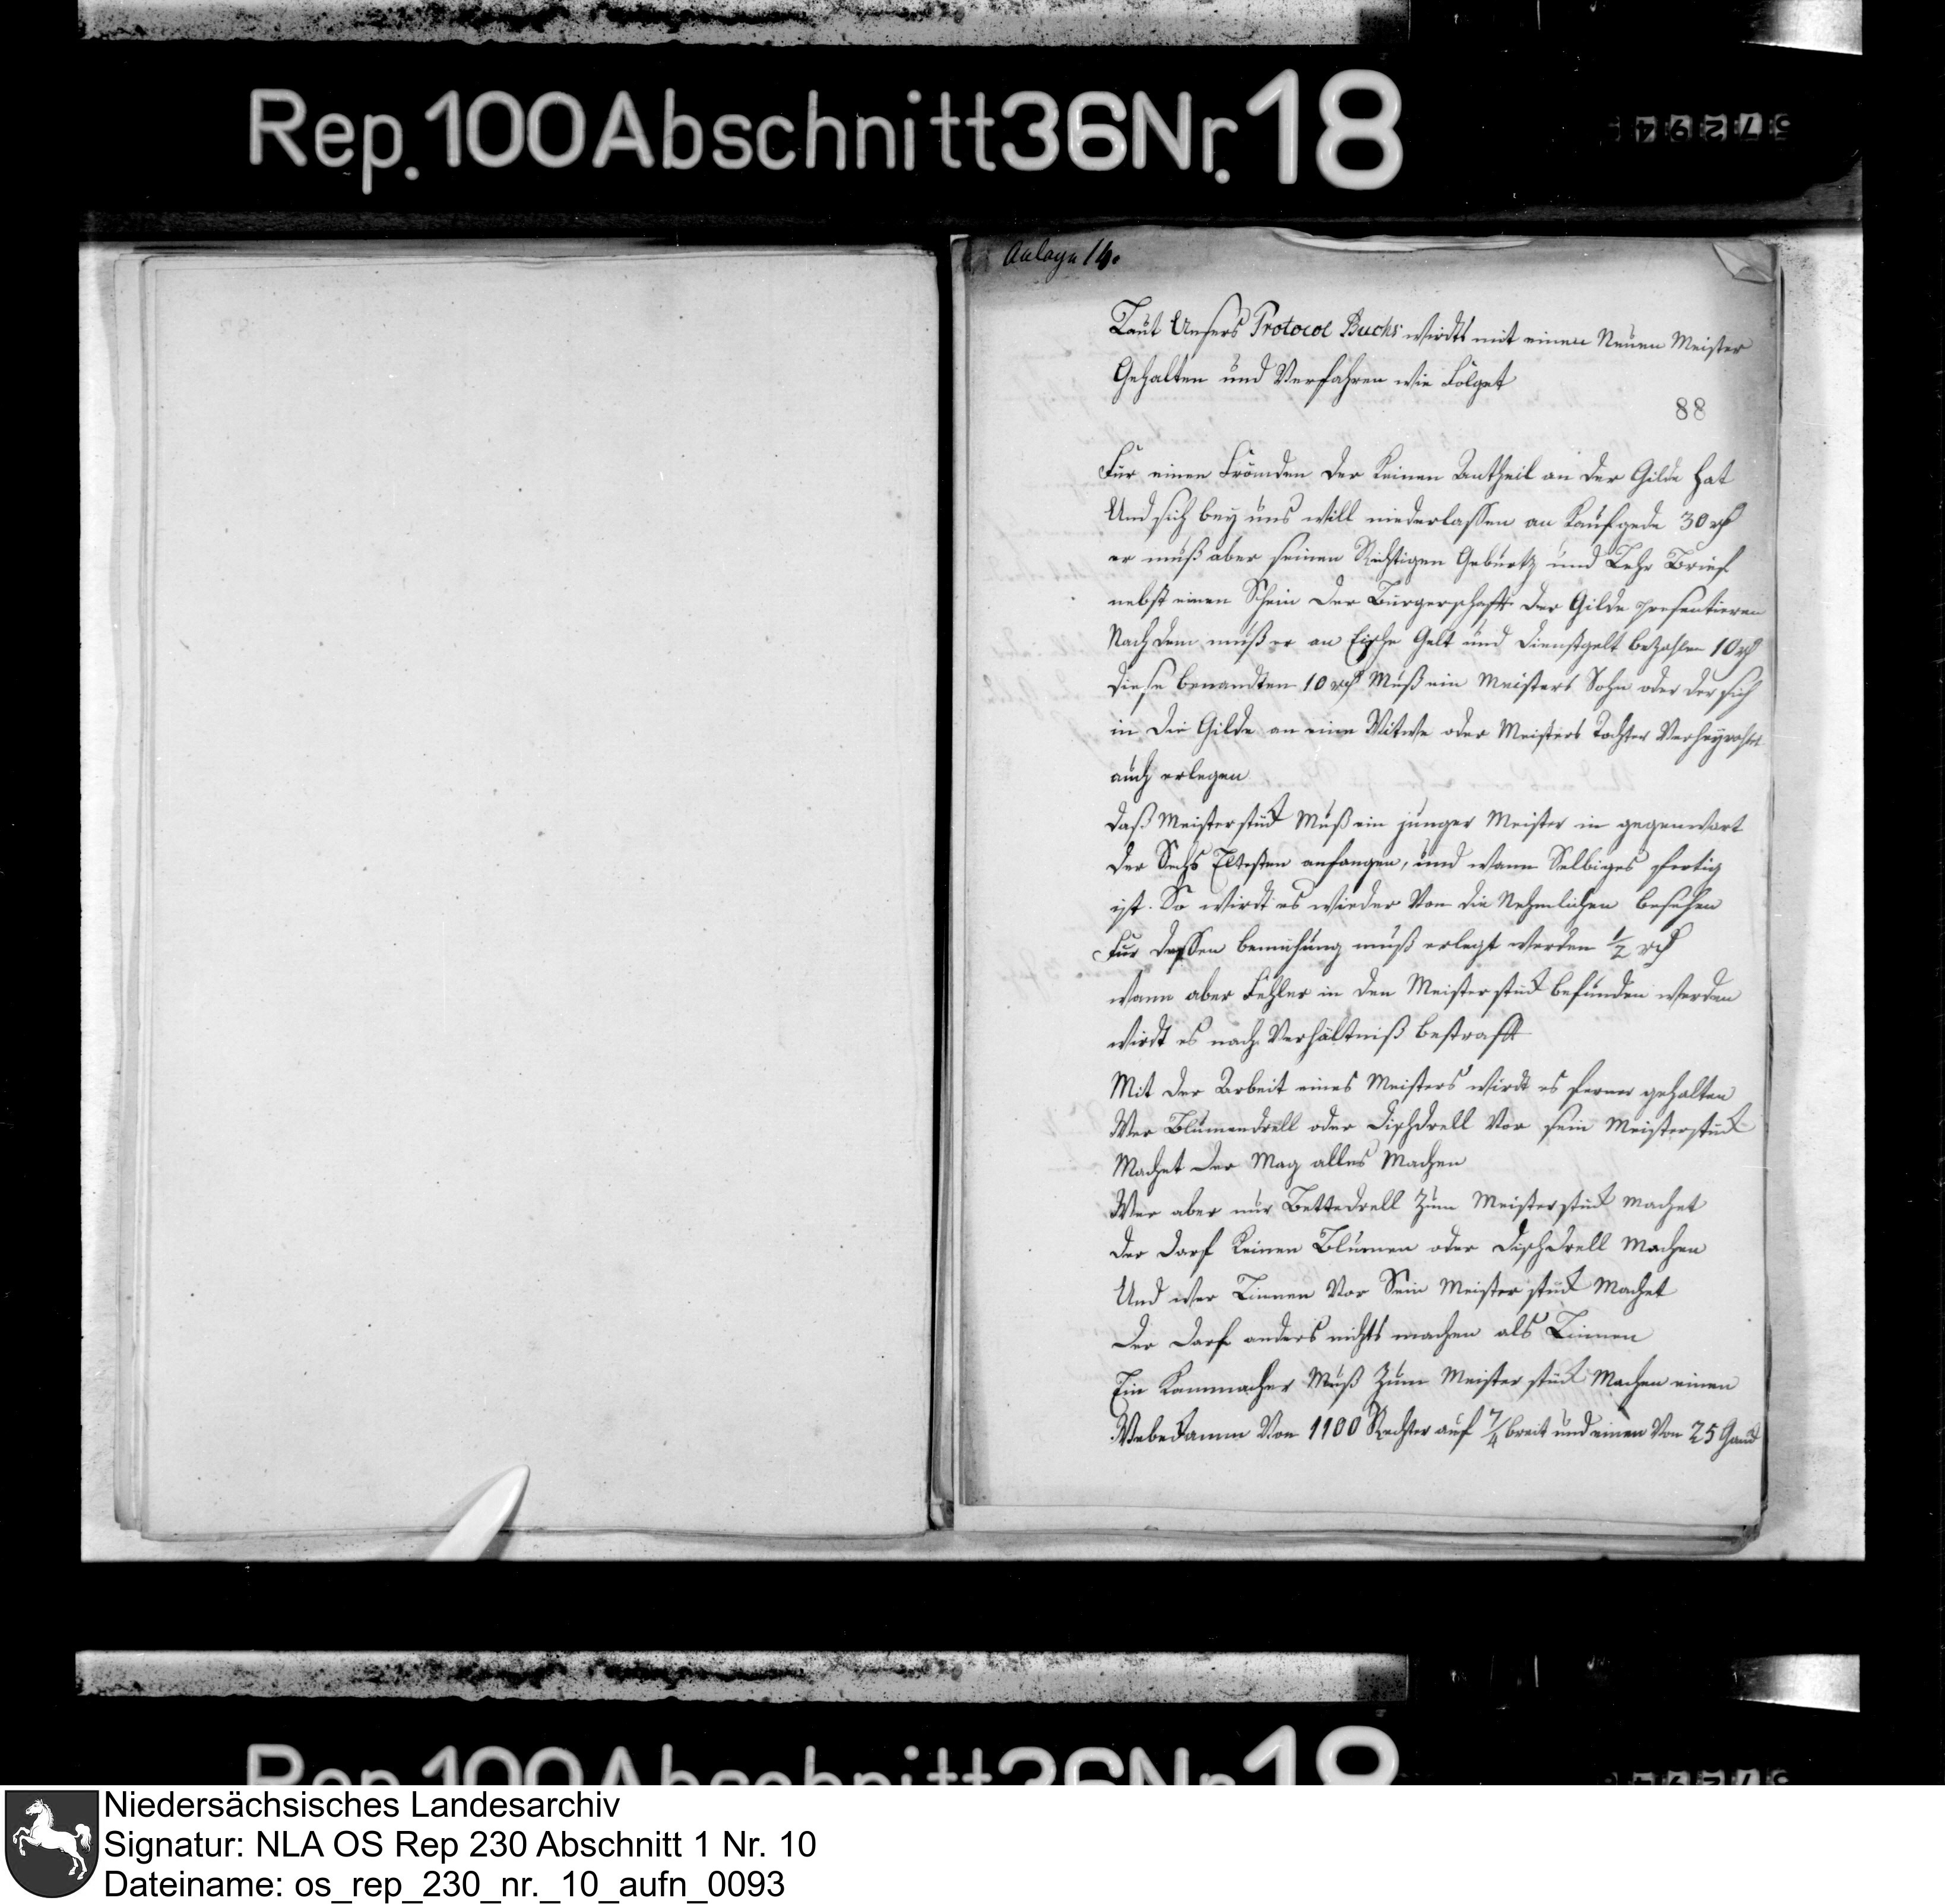 Rep. 100 Abschnitt 36 Nr. 18
Anlage 14.
Laut Unsers Protocol Buchs wirdts mit einen Neuen Meister
Gehalten und Verfahren wie Folget
88
Für einen Frömden der Keinen Antheil an der Gilde hat
Und sich bey uns will niederlassen an Kaufgede 30 rth
er muß aber seinen Richtigen Geburtz und Lehr Brief
nebst einen Schein der Bürgerschafft der Gilde presentieren
Nach dem muß er an Gelt und Dienstgelt bezahlen 10 rth
diese benandten 10 rth Muß ein Meisters Sohn oder der sich
in die Gilde an eine Witwe oder Meisters Tochter Verheyrahtet
auch erlegen
daß Meisterstück Muß ein junger Meister in gegenwart
der Sechs Eltesten anfangen, und wann Selbiges fertig
ist. So wirdt es wieder Von die Nehmlichen besehen
Für dessen bemühung muß erlegt werden 1/2 rth
wann aber Fehler in den Meisterstück befunden werden
wirdt es nach Verhältniß bestrafft
Mit der Arbeit eines Meisters wirdt es ferner gehalten
Wer Blumendrell oder Dischdrell Vor sein Meisterstück
Machet der Mag alles Machen
Wer aber nur Bettedrell Zum Meisterstück machet
der darf Keinen Blumen oder Dischdrell Machen
Und wer Linnen Vor Sein Meisterstück Machet
Der darf anders nichts machen als Linnen
Ein Kammacher Muß Zum Meisterstück Machen einen
Von 1100 auf 7/4 breit und einen Von 25
Rep. 100 Abschnitt 36 Nr. 18
Niedersächsisches Landesarchiv
Signatur: NLA OS Rep 230 Abschnitt 1 Nr. 10
Dateiname: os_rep_230_nr._10_aufn_0093